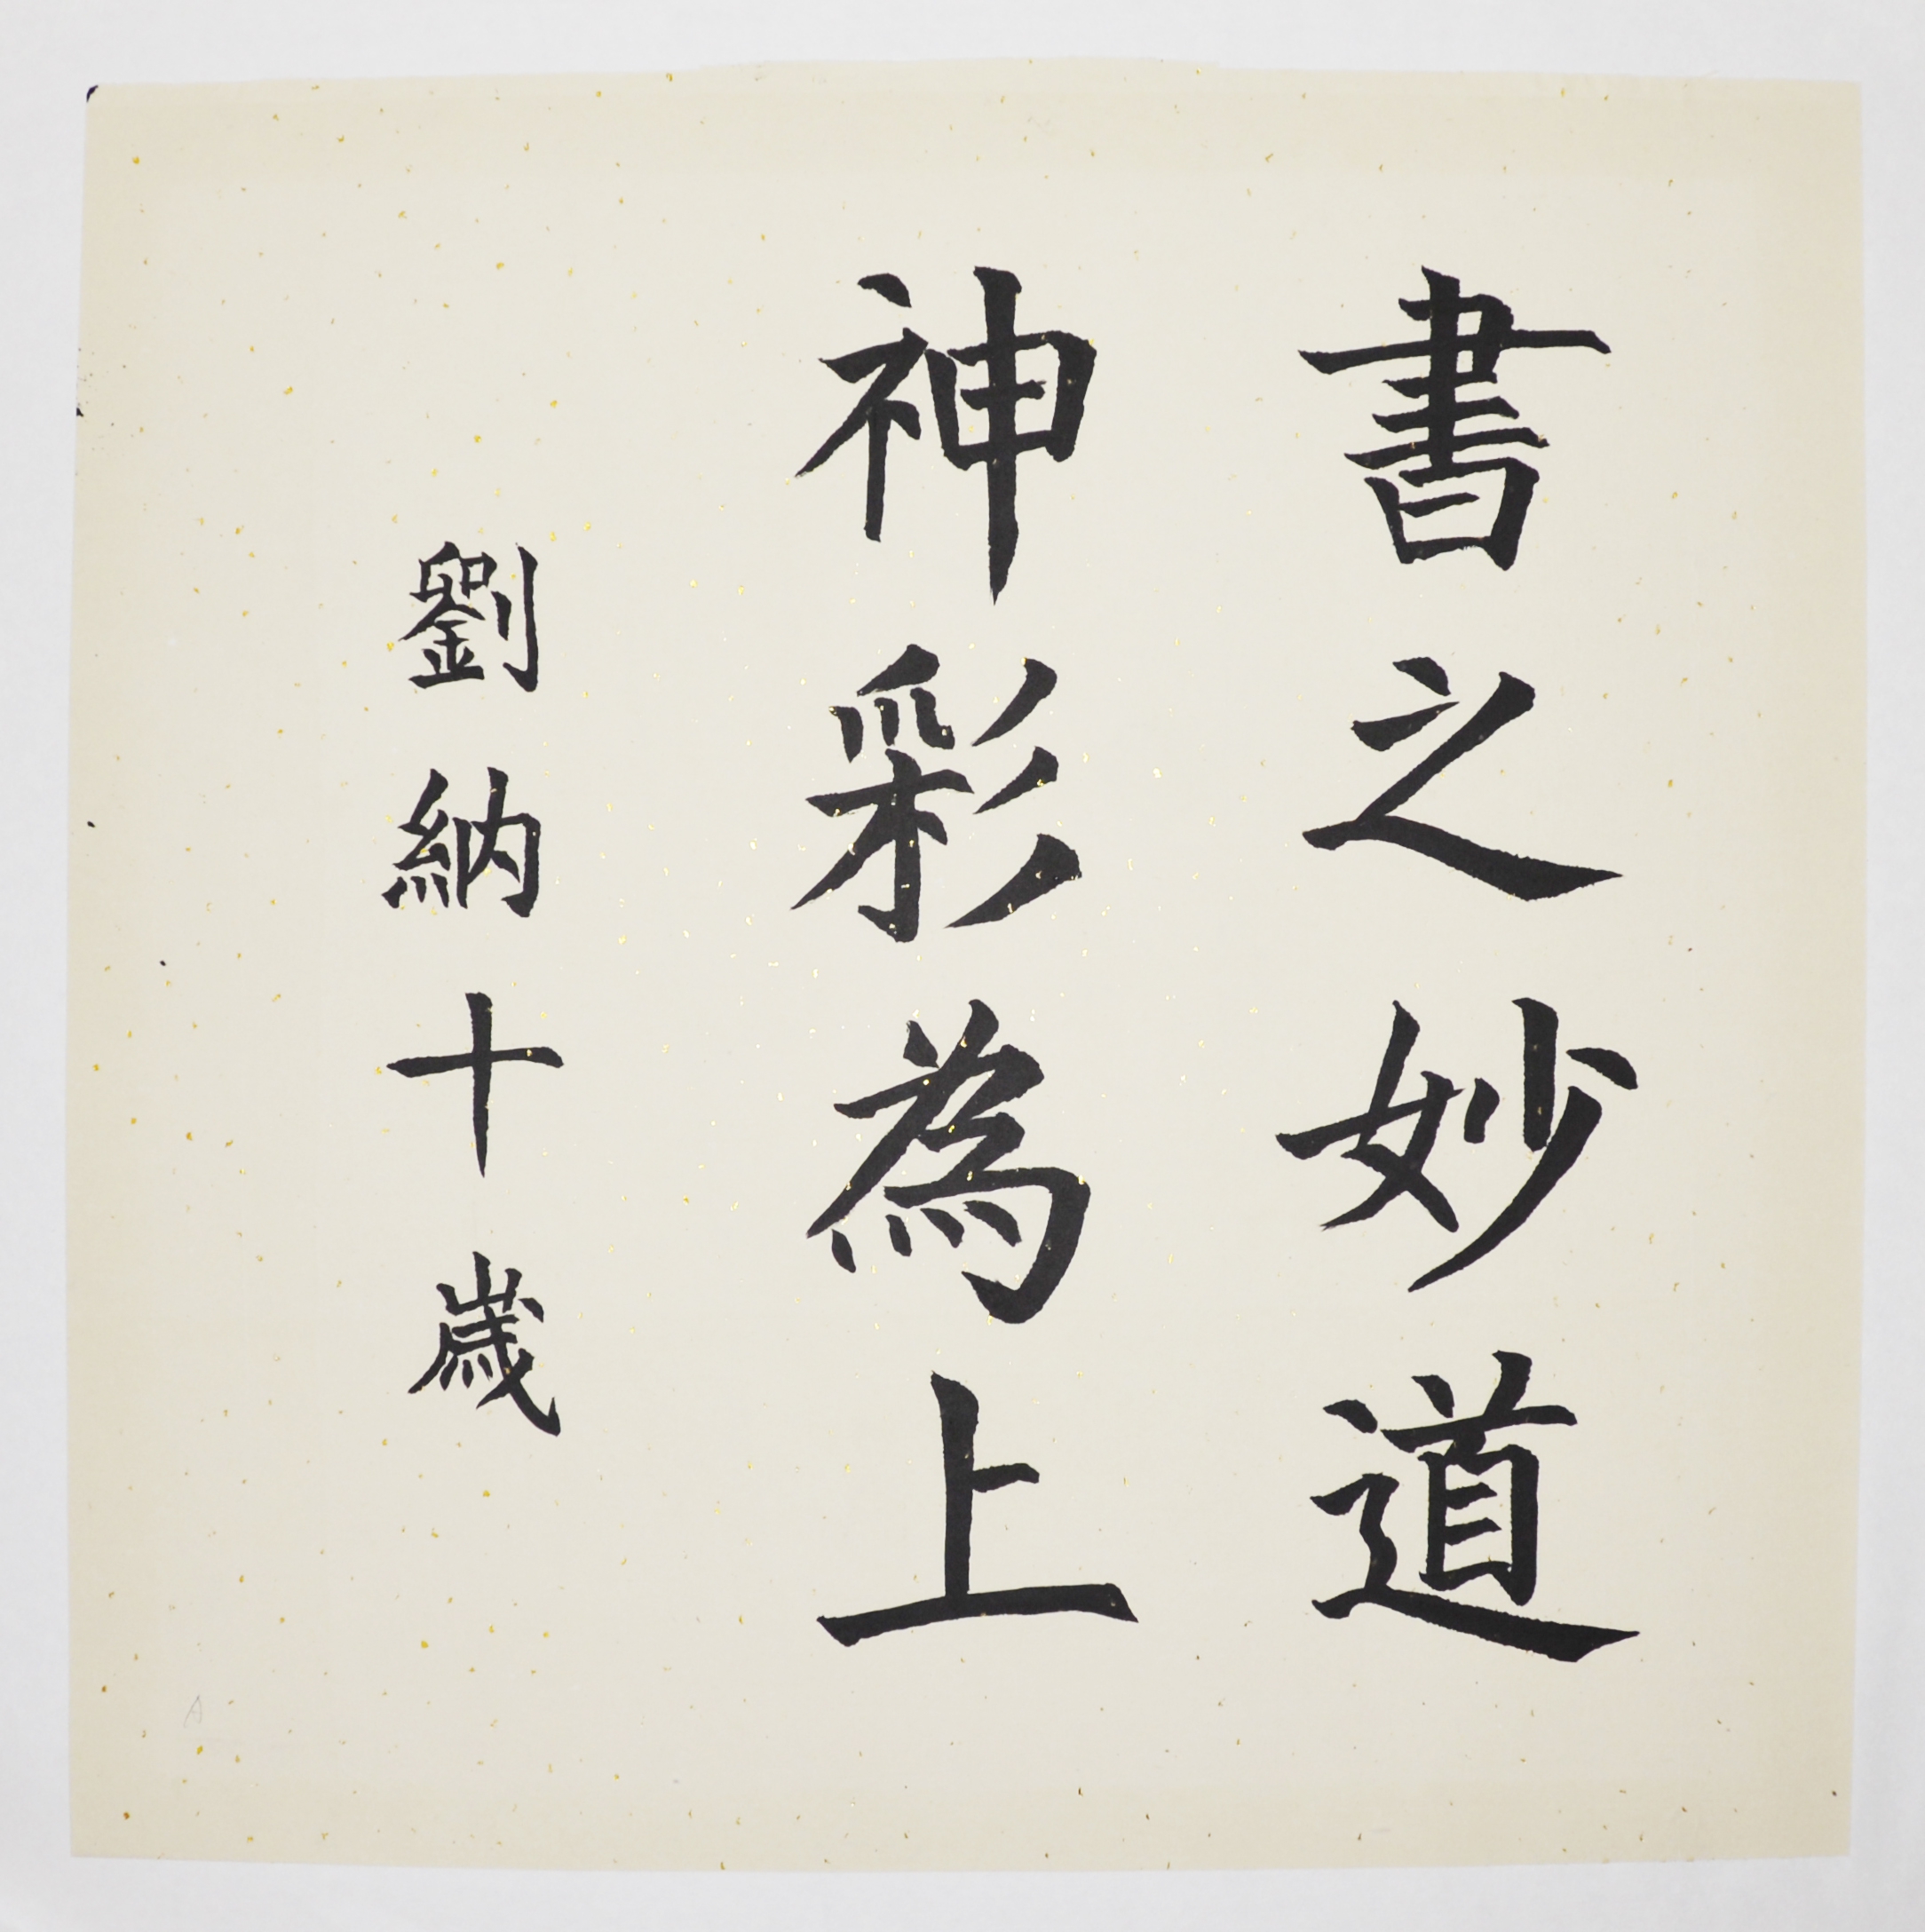 書之妙道
神彩為上
劉納十歲
A